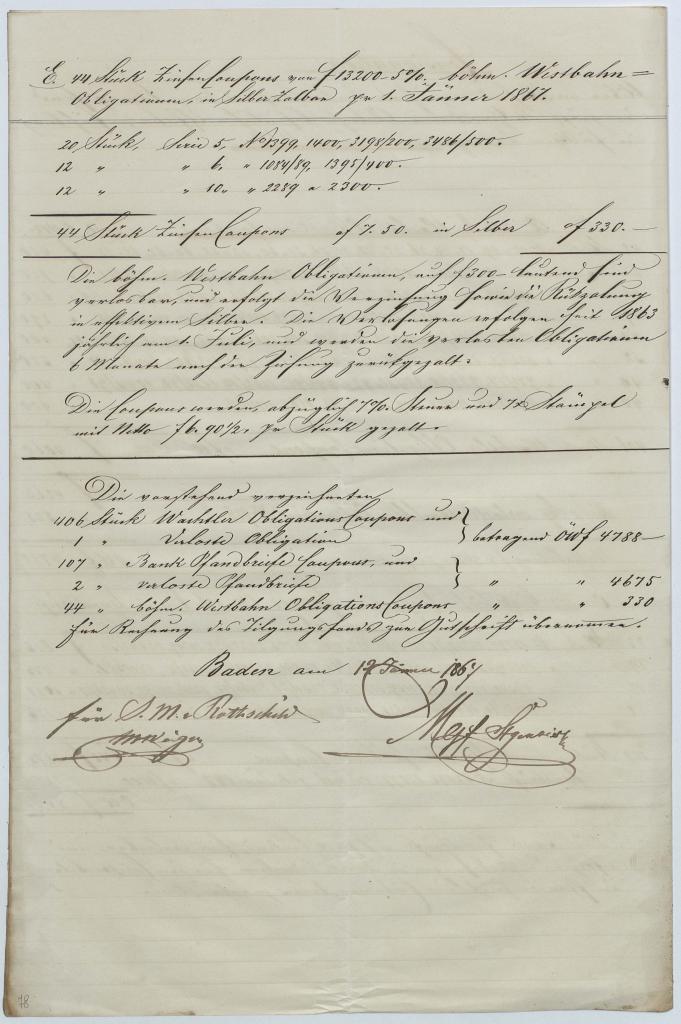 E. 44 Stück Zinsen Coupons von f 13200 – 5%. böhm. Westbahn=
Obligationen, in Silber zalbar pr 1. Jänner 1867.
20 Stück, Serie 5, No 1399, 1400, 3198/200, 3486/500.
12 „ „ 6, „ 1084/89, 1395/400.
12 „ „ 10, „ 2289 a 2300.
44 Stück Zinsen Coupons af 7.50. in Silber of 330.–
Die böhm. Westbahn Obligationen, auf f 300 – lautend sind
verlosbar, und erfolgt die Verzinsung sowie die Rükzalung
in effektivem Silber. Die Verlosungen erfolgen seit 1863
jährlich am 1. Juli, und werden die verlosten Obligationen
6 Monate nach der Ziehung zurükgezalt.
Die Coupons werden, abzüglich 7%. Steuer und 7x Stämpel
mit Netto f 6.90½, pr Stück gezalt.
Die vorstehend verzeichneten
406 Stück Obligations Coupons und
1 „ Verloste Obligation betragend ÖWf 4788 –
107 „ Bank Pfandbriefe Coupons, und
2 „ verloste Pfandbriefe „ „ 4675
44 „ böhm. Westbahn Obligations Coupons „ „ 330
für Rechnung des Tilgungsfonds zur Gutschrift übernommen.
Baden am 12 Jänner 1867
für S. M. v Rothschild